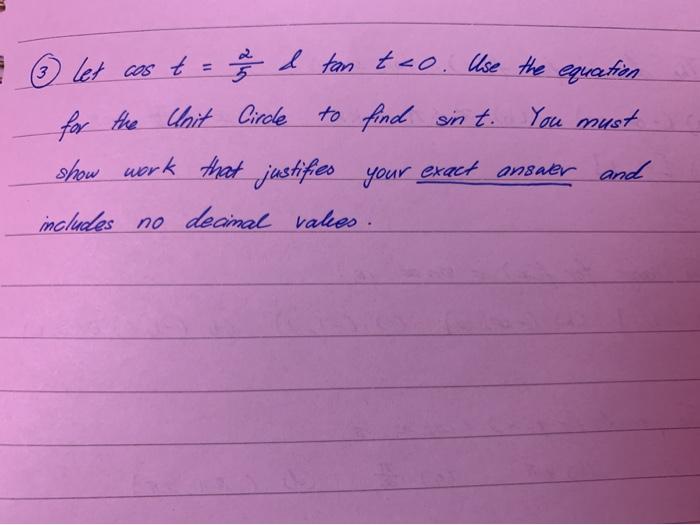 ③ Let cos t = 2/5 & tan t < 0. Use the equation
for the Unit Circle to find sin t. You must
show work that justifies your exact answer and
includes no decimal values.